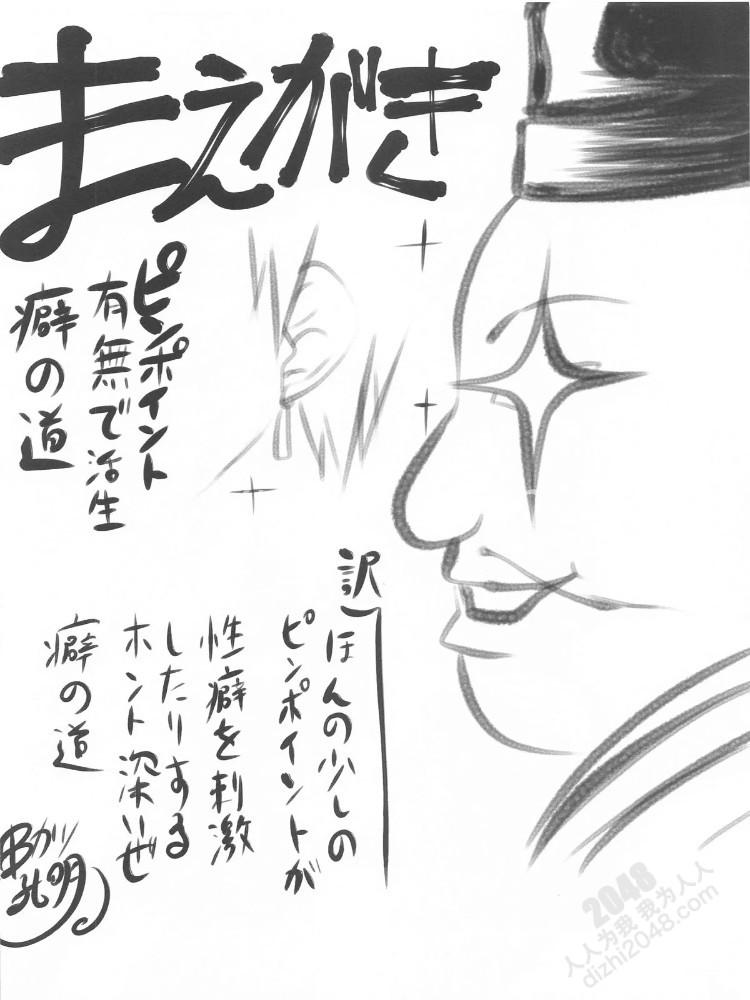 まえがき
ピンポイント
有無で活生
癖の道
訳
ほんの少しの
ピンポイントが
性癖を刺激
したりする
ホント深いぜ
癖の道
串カツ
孔明
2048
人人为我 我为人人
dizhi2048.com